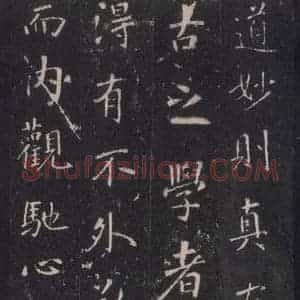 道妙则真
古之学者
得有不外
而内觀馳心
shufaziliao.com